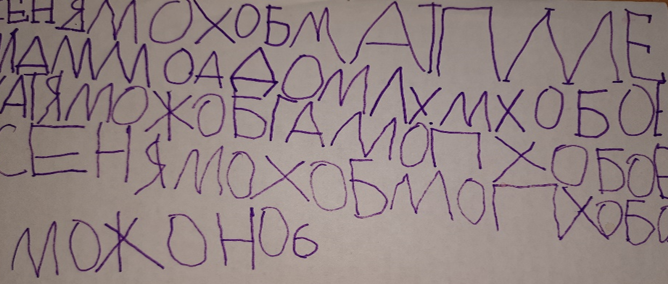 СЕНЯМОХОБМАТПМЕ
МАММОАДОМЛХМХОБОЕ
КАТЯМОЖОБГАМОПХОБОЕ
СЕНЯМОХОБМОПХОБО
МОЖОНОБ